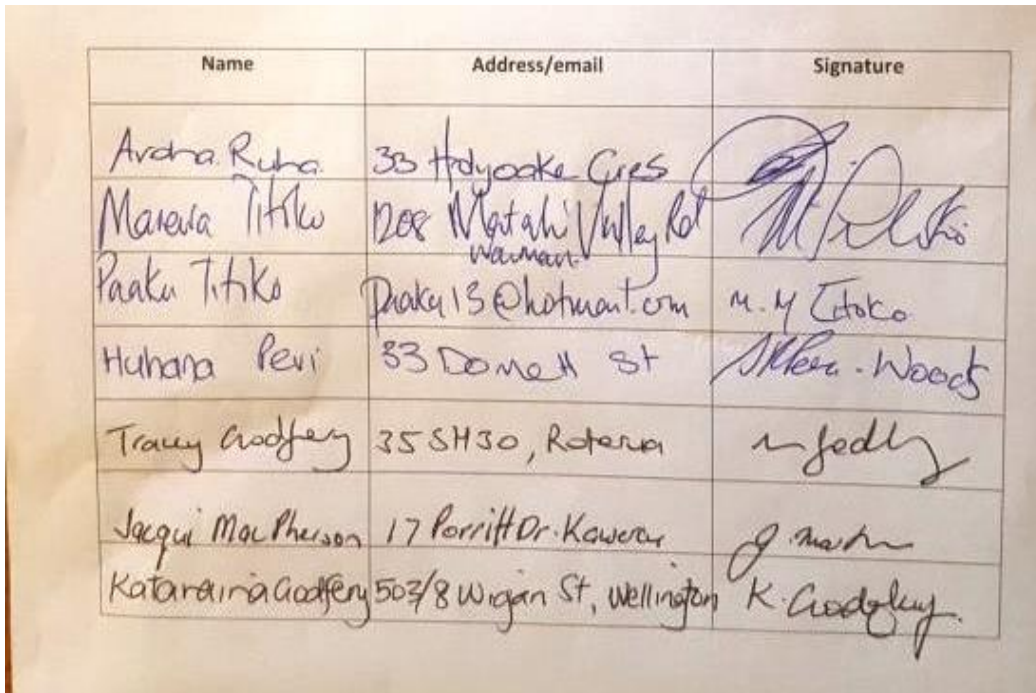 Name Address/email Signature
Ardna Ruha 33 Holyoake Cres
Marewa Titiko 1208 Matahi Valley Rd
Waimana
Paaku Titiko Paaku13@hotmail.com M. M Titoko
Huhana Peri 33 Domett St Woods
Tracey Godfery 35 SH30, Rotorua
Jacqui MacPherson 17 Porritt Dr. Kawerau
Kataraina Godfery 503/8 Wigan St, Wellington K. Godfery